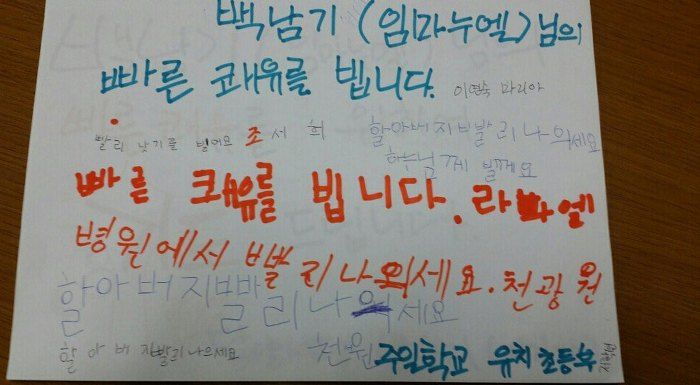 백남기 (임마누엘)님의
빠른 쾌유를 빕니다. 이연숙 마리아
빨리 낫기를 빌어요 조서희
할아버지 빨리 나으세요
하느님께 빌께요
빠른 쾌유를 빕니다. 라파엘
병원에서 빨리 나으세요. 천광원
할아버지 빨리 나으세요
할아버지 빨리 나으세요
천원 주일학교 유치 초등부